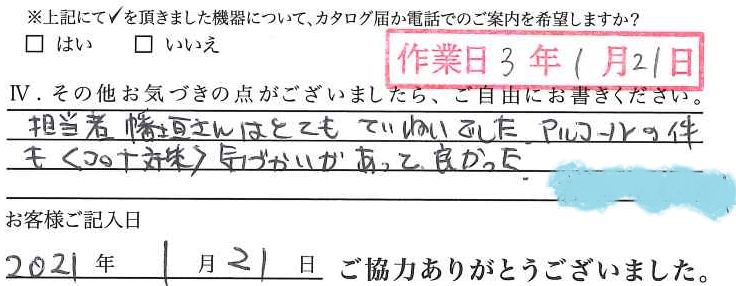 ※上記にて✓を頂きました機器について、カタログ届か電話でのご案内を希望しますか？
□ はい □ いいえ
作業日 3 年 1 月 21 日
Ⅳ．その他お気づきの点がございましたら、ご自由にお書きください。
担当者 幡垣さんはとても ていねいでした。アルコールの件
も〈コロナ対策〉気づかいが あって 良かった。
お客様ご記入日
2021 年 1 月 21 日 ご協力ありがとうございました。